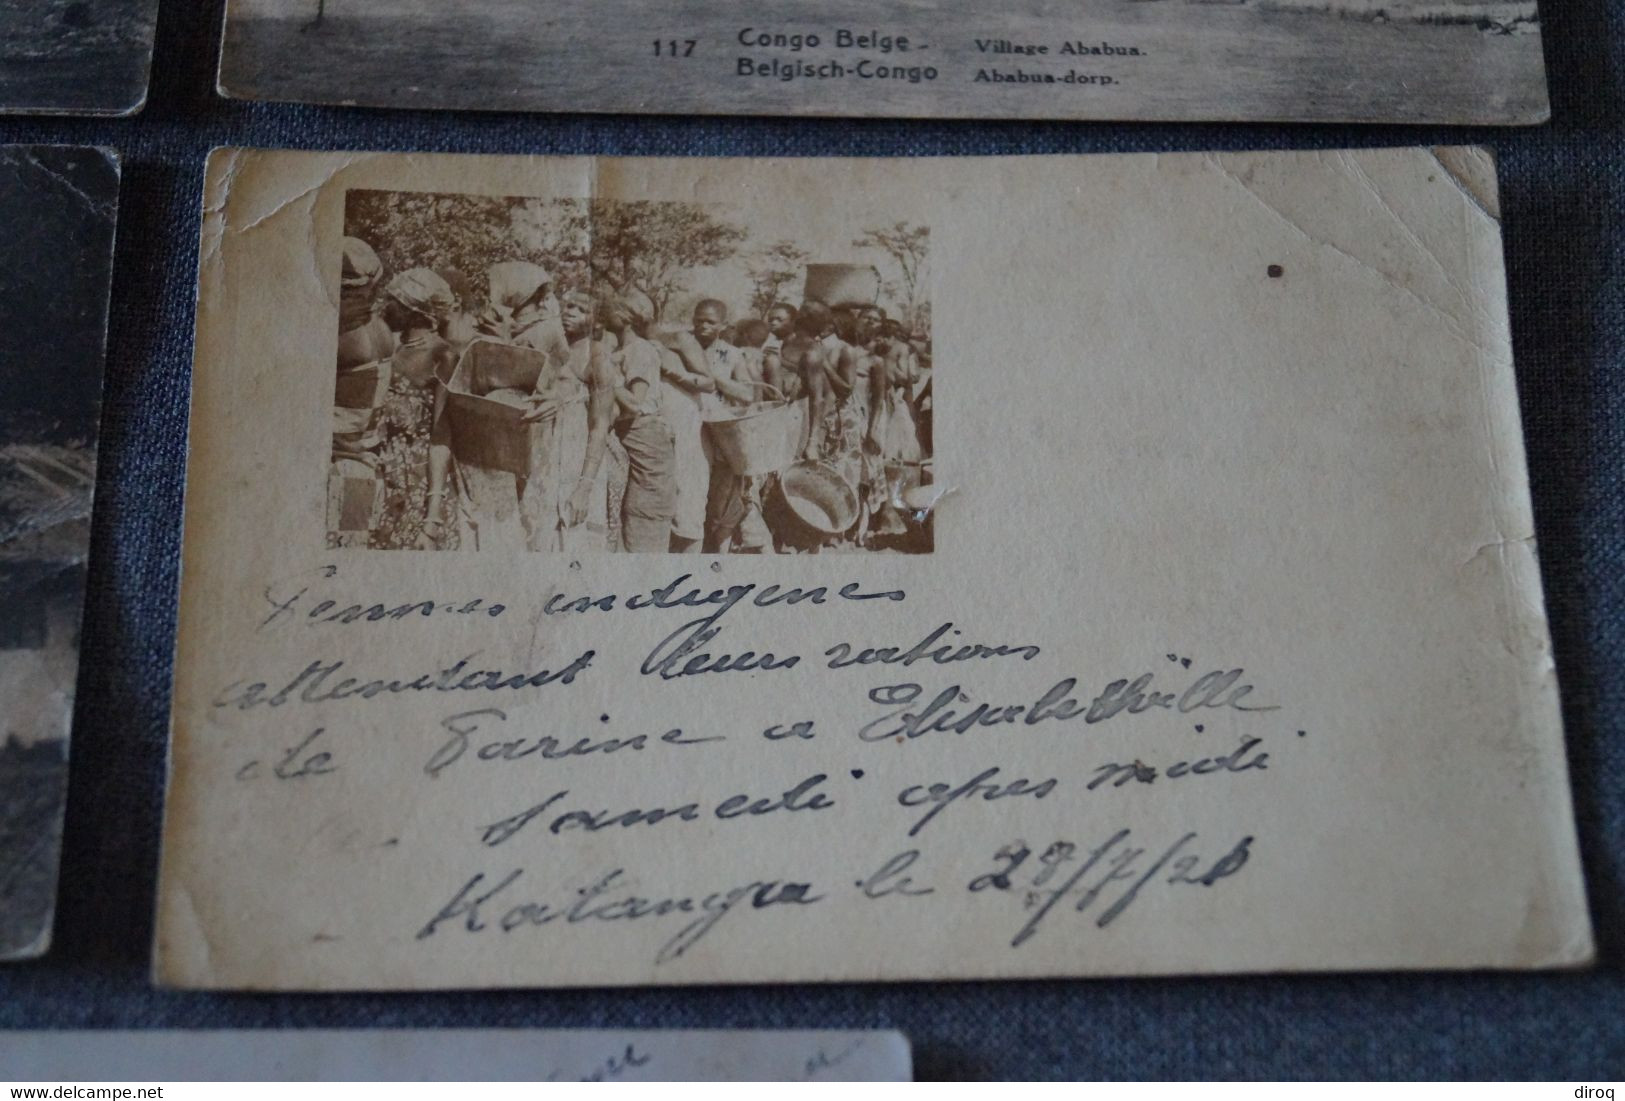 117 Congo Belge - Village Ababua.
Belgisch-Congo Ababua-dorp.
Femmes indigenes
attendant leurs rations
de Farine a Elisabethville
samedi apres midi
Katanga le 28/7/28
diroq